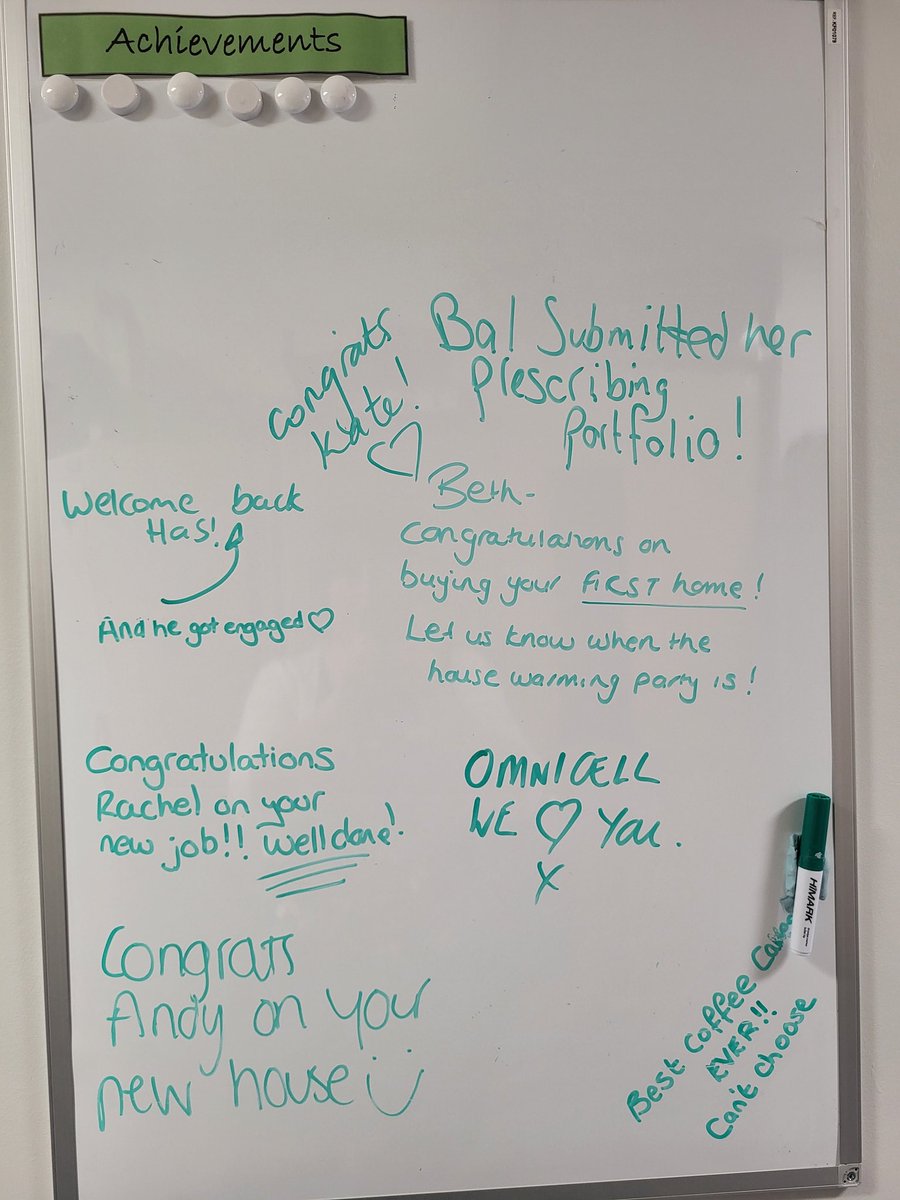 Achievements
congrats
Kate!
Bal Submitted her
Prescribing
Portfolio!
Welcome back
Has!
And he got engaged
Beth-
Congratulations on
buying your FIRST home!
Let us know when the
house warming party is!
Congratulations
Rachel on your
new job!! Well done!
OMNICELL
WE You.
x
Congrats
Andy on your
new house
Best Coffee
EVER!!
Can't choose
HIMARK